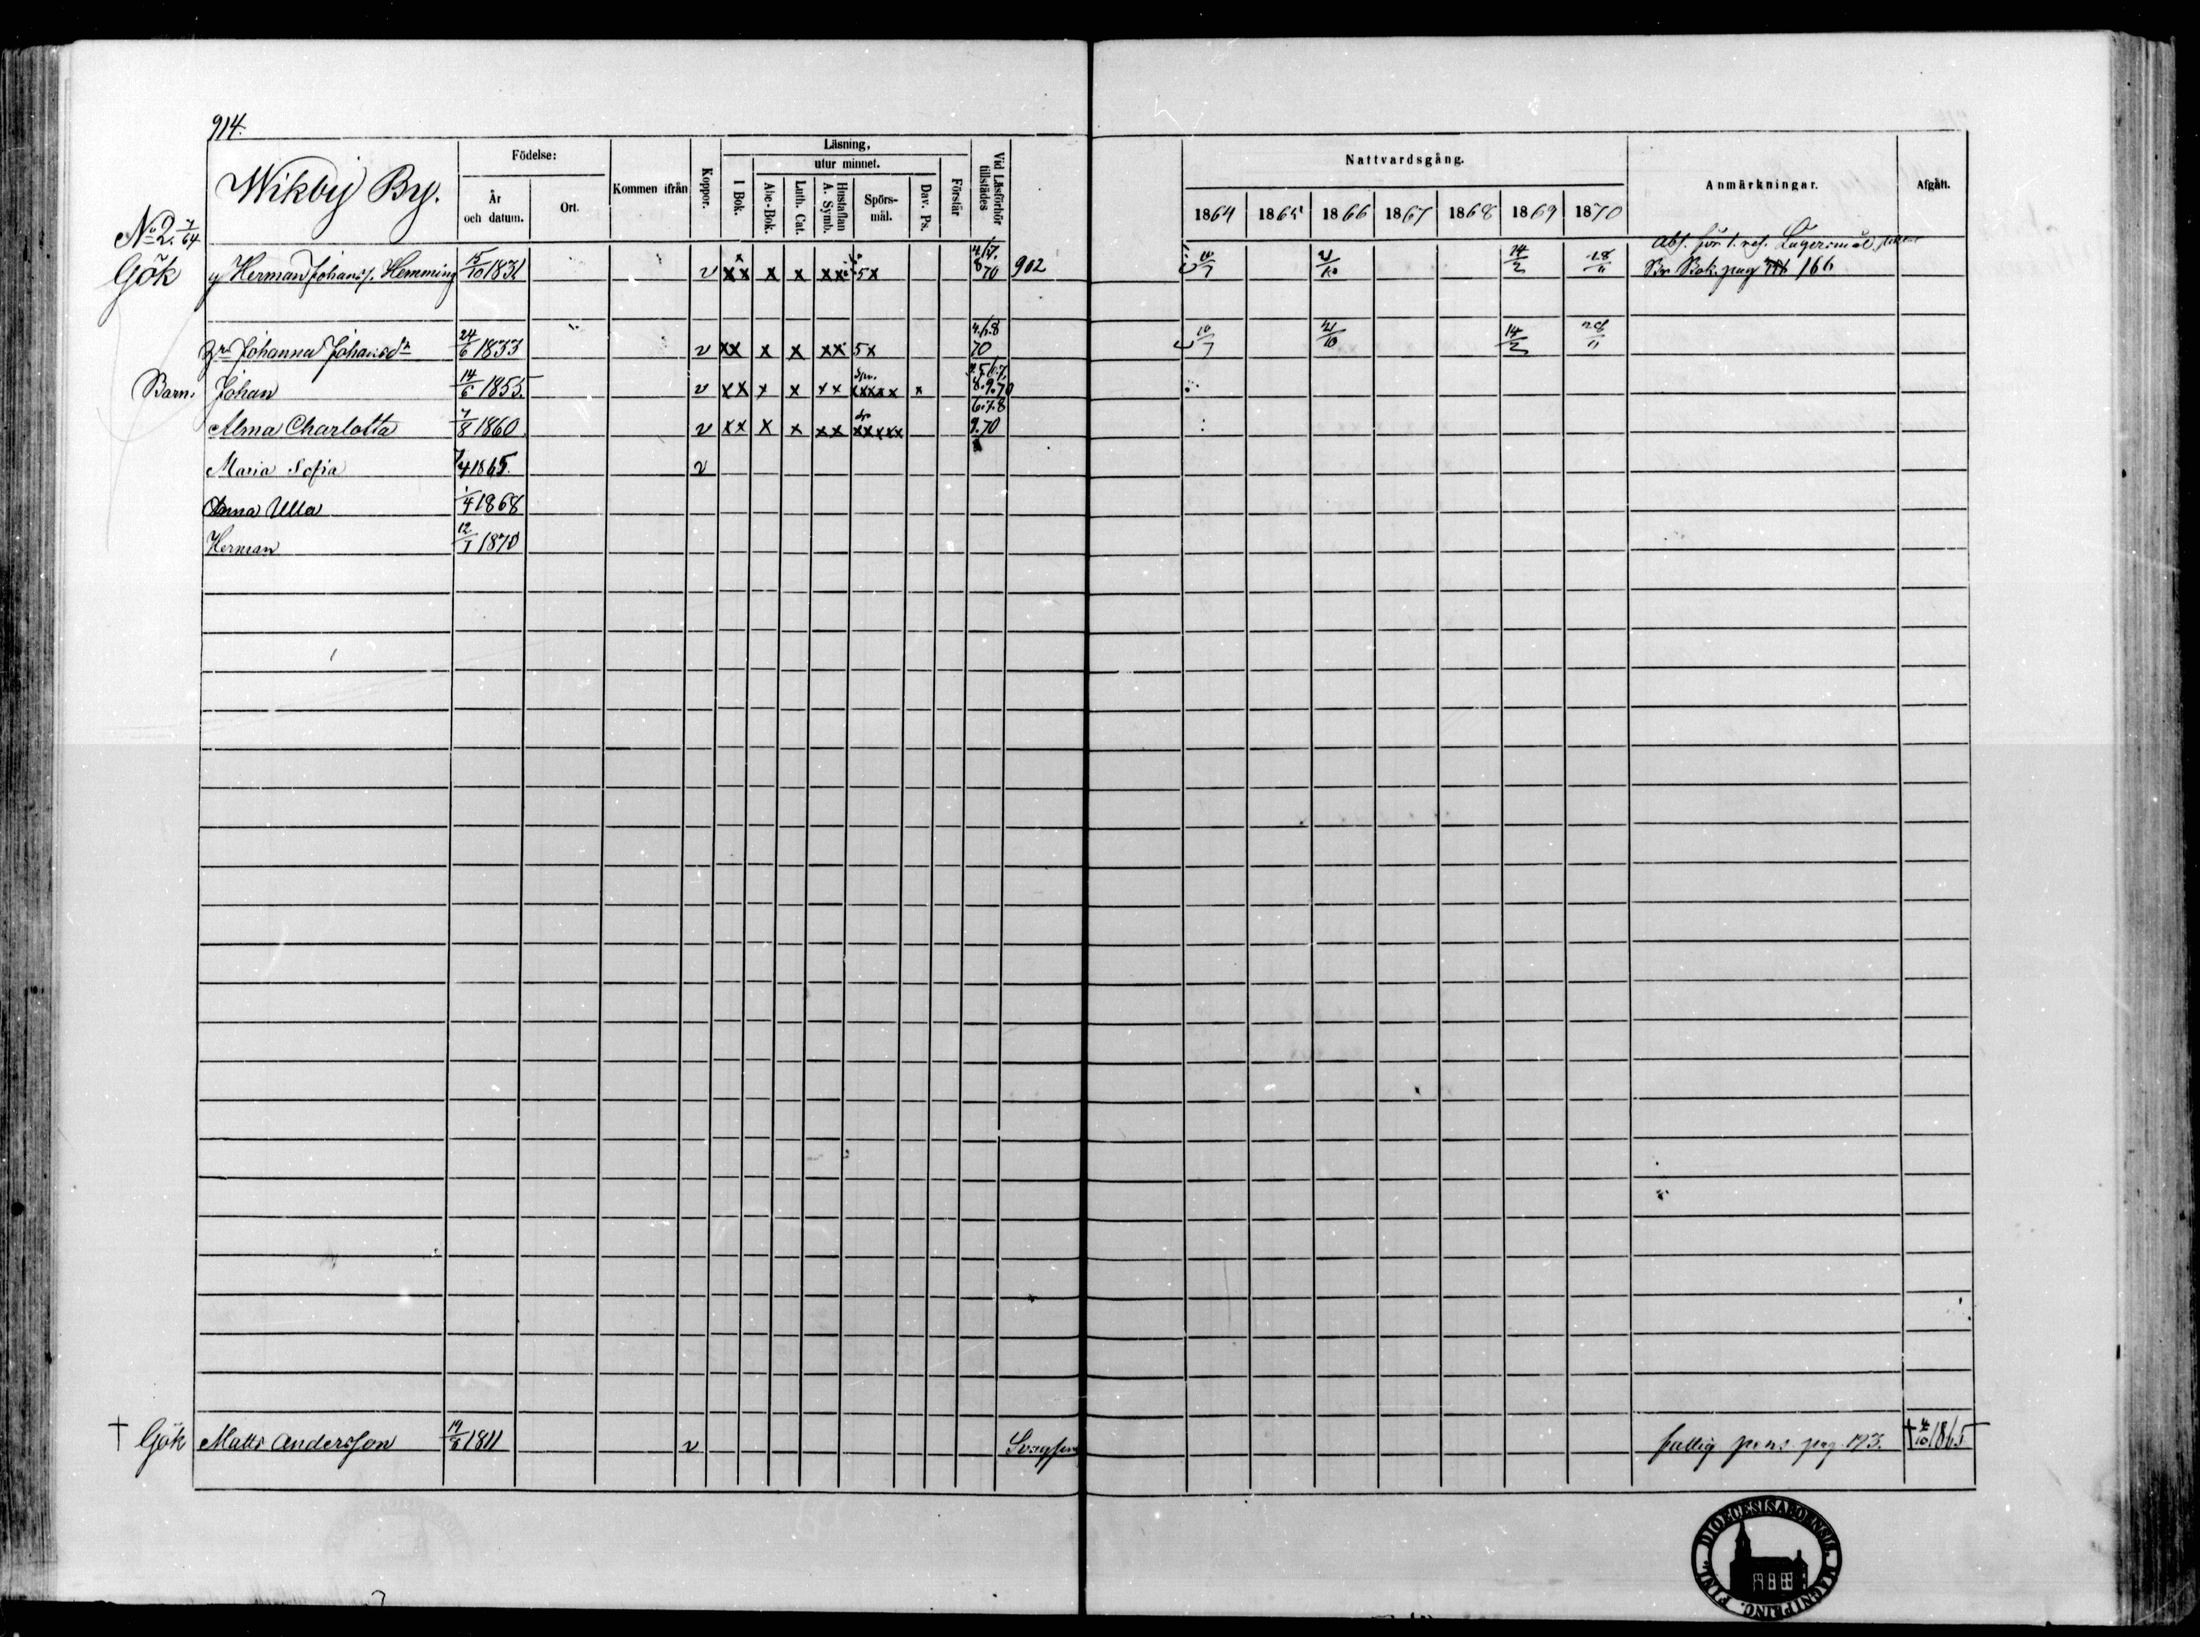 914.
Wikby By.
Födelse:
År och datum.
Ort.
Kommen ifrån
Koppor.
Läsning,
I Bok.
utur minnet.
Abc-Bok.
Luth. Cat.
Hustaflan A. Symb.
Spörsmål.
Dav. Ps.
Förstår
Vid Läsförhör tillstädes
Nattvardsgång.
1864 1865 1866 1867 1868 1869 1870
Anmärkningar.
Afgått.
No 2. 7/64
Gök Herman Johanss. Hemming 15/10 1831 v xx x x xx 5x 70 902 10/7 21/10 14/2 Bok. pag 166
Johanna Johansdr 24/6 1833 v xx x x xx 5x 4.6.8 70 10/7 21/10 14/2 28/11
Barn. Johan 14/6 1855. v xx x x xx xxxxx x 8.9.70
Alma Charlotta 7/8 1860. v xx x x xx xxxxx 6.7.8 9.70
Maria Sofia 7/4 1865. v
Anna Ulla 1/4 1868
Herman 12/1 1870
† Gök Matts Andersson 1811 v fattig pag. 193. † 4/10 1865
FINL. DIOECESIS ABOENSIS. MAGNI PRINC.